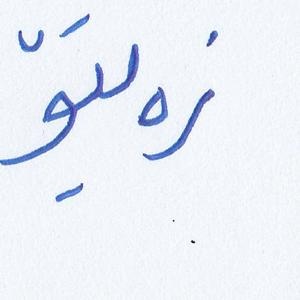 زەلیتۆ